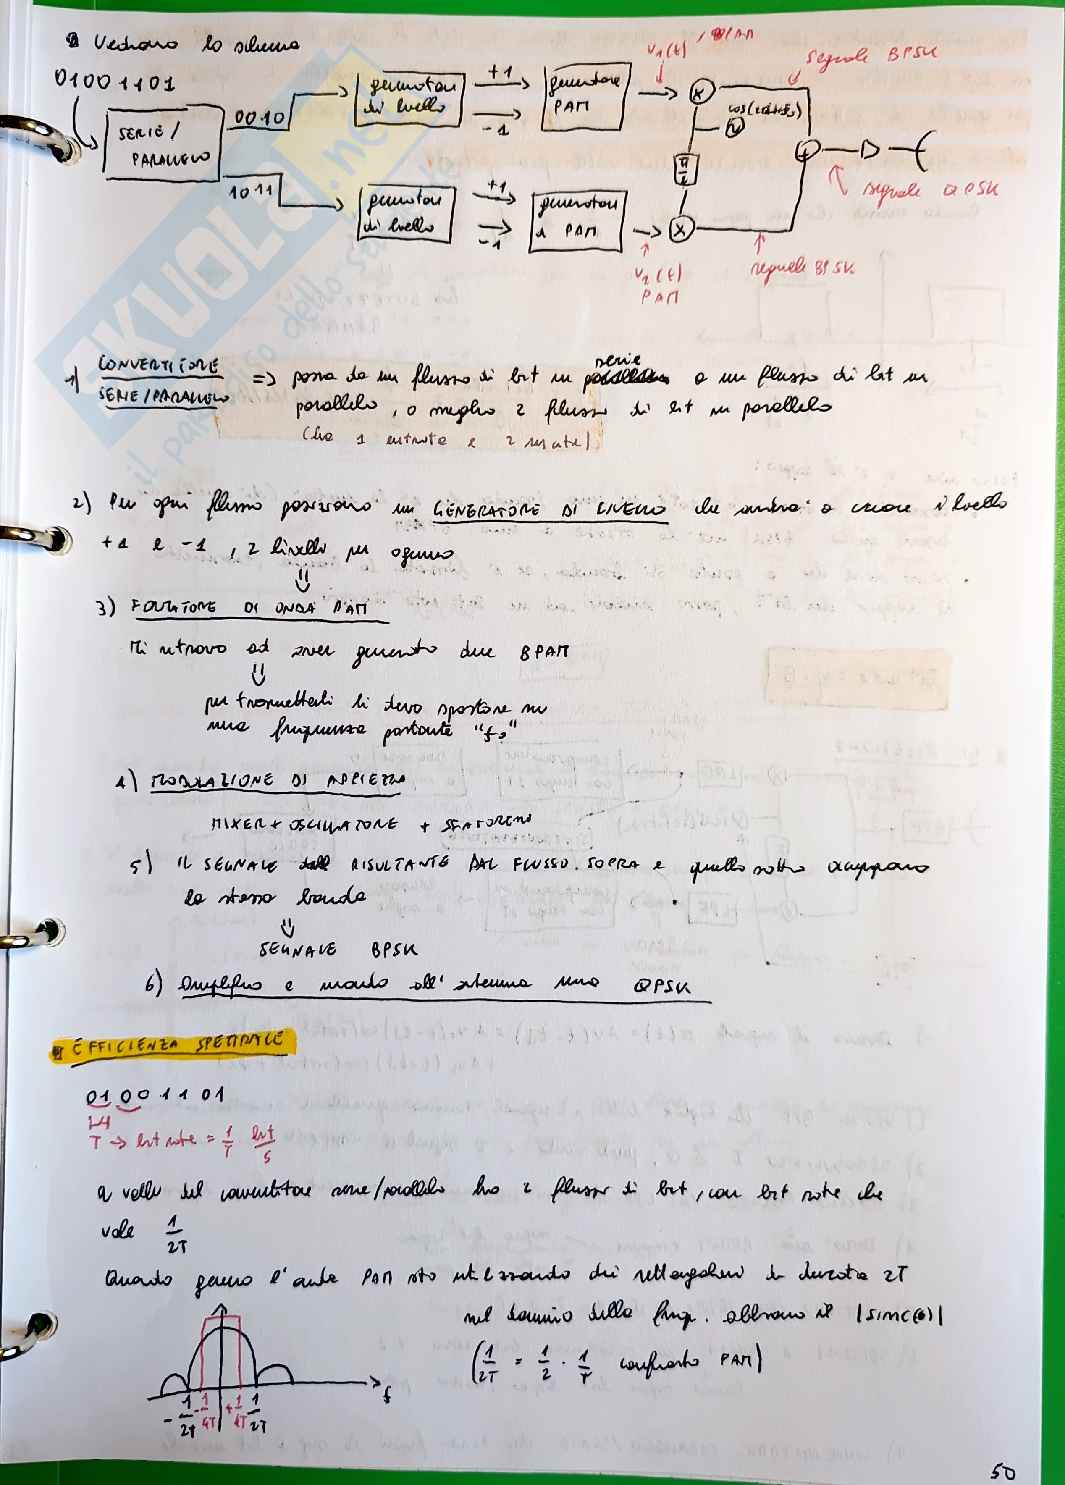 Vediamo lo schema
01001101
SERIE/
PARALLELO
0010
1011
generatore
di livello
+1
-1
generatore
PAM
v1(t)
BPAM
segnale BPSK
cos(2πf0t)
π/2
segnale QPSK
generatore
di livello
+1
-1
generatore
PAM
v2(t)
PAM
segnale BPSK
1) CONVERTITORE
SERIE/PARALLELO
=> passa da un flusso di bit in serie a un flusso di bit in
parallelo, o meglio 2 flussi di bit in parallelo
(ha 1 entrata e 2 uscite)
2) Per ogni flusso posiziono un GENERATORE DI LIVELLO che andrà a creare il livello
+1 e -1, 2 livelli per ognuno
3) FORMATORE DI ONDA PAM
Mi ritrovo ad aver generato due BPAM
per trasmetterli li devo spostare su
una frequenza portante "f0"
4) MODULAZIONE DI AMPIEZZA
MIXER + OSCILLATORE + SFASATORE
5) IL SEGNALE RISULTANTE DAL FLUSSO SOPRA e quello sotto occupano
la stessa banda
SEGNALE BPSK
6) Amplifico e mando all'antenna una QPSK
EFFICIENZA SPETTRALE
01001101
T -> bit rate = 1/T bit/s
a valle del convertitore serie/parallelo ho 2 flussi di bit, con bit rate che
vale 1/2T
Quando genero l'onda PAM sto utilizzando dei rettangolini di durata 2T
nel dominio della freq. abbiamo il |sinc(·)|
(1/2T = 1/2 · 1/T confronto PAM)
f
-1/2T -1/4T +1/4T 1/2T
50
SKUOLA.net
il paradiso dello studente